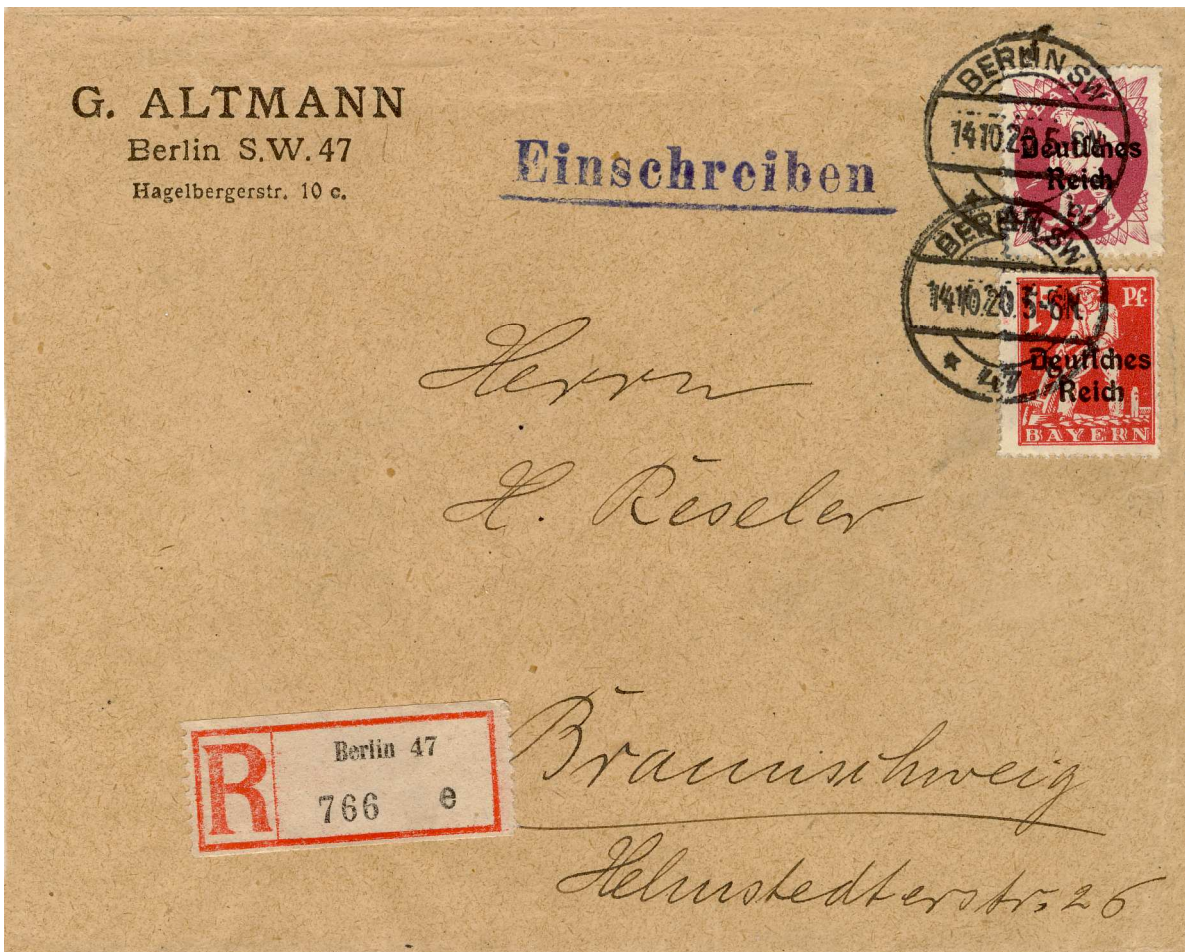 G. ALTMANN
Berlin S.W. 47
Hagelbergerstr. 10 c.
Einschreiben
BERLIN SW
14.10.20.5-6N
Deutſches
Reich
BERLIN SW
14.10.20.5-6N
* 47
15 Pf.
Deutſches
Reich
BAYERN
Herrn
H. Reseler
R
Berlin 47
766 e
Braunschweig
Helmstedterstr. 26